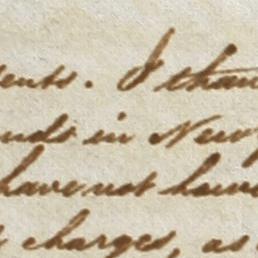 ents. I than
nds in New
have not howe
charges, as